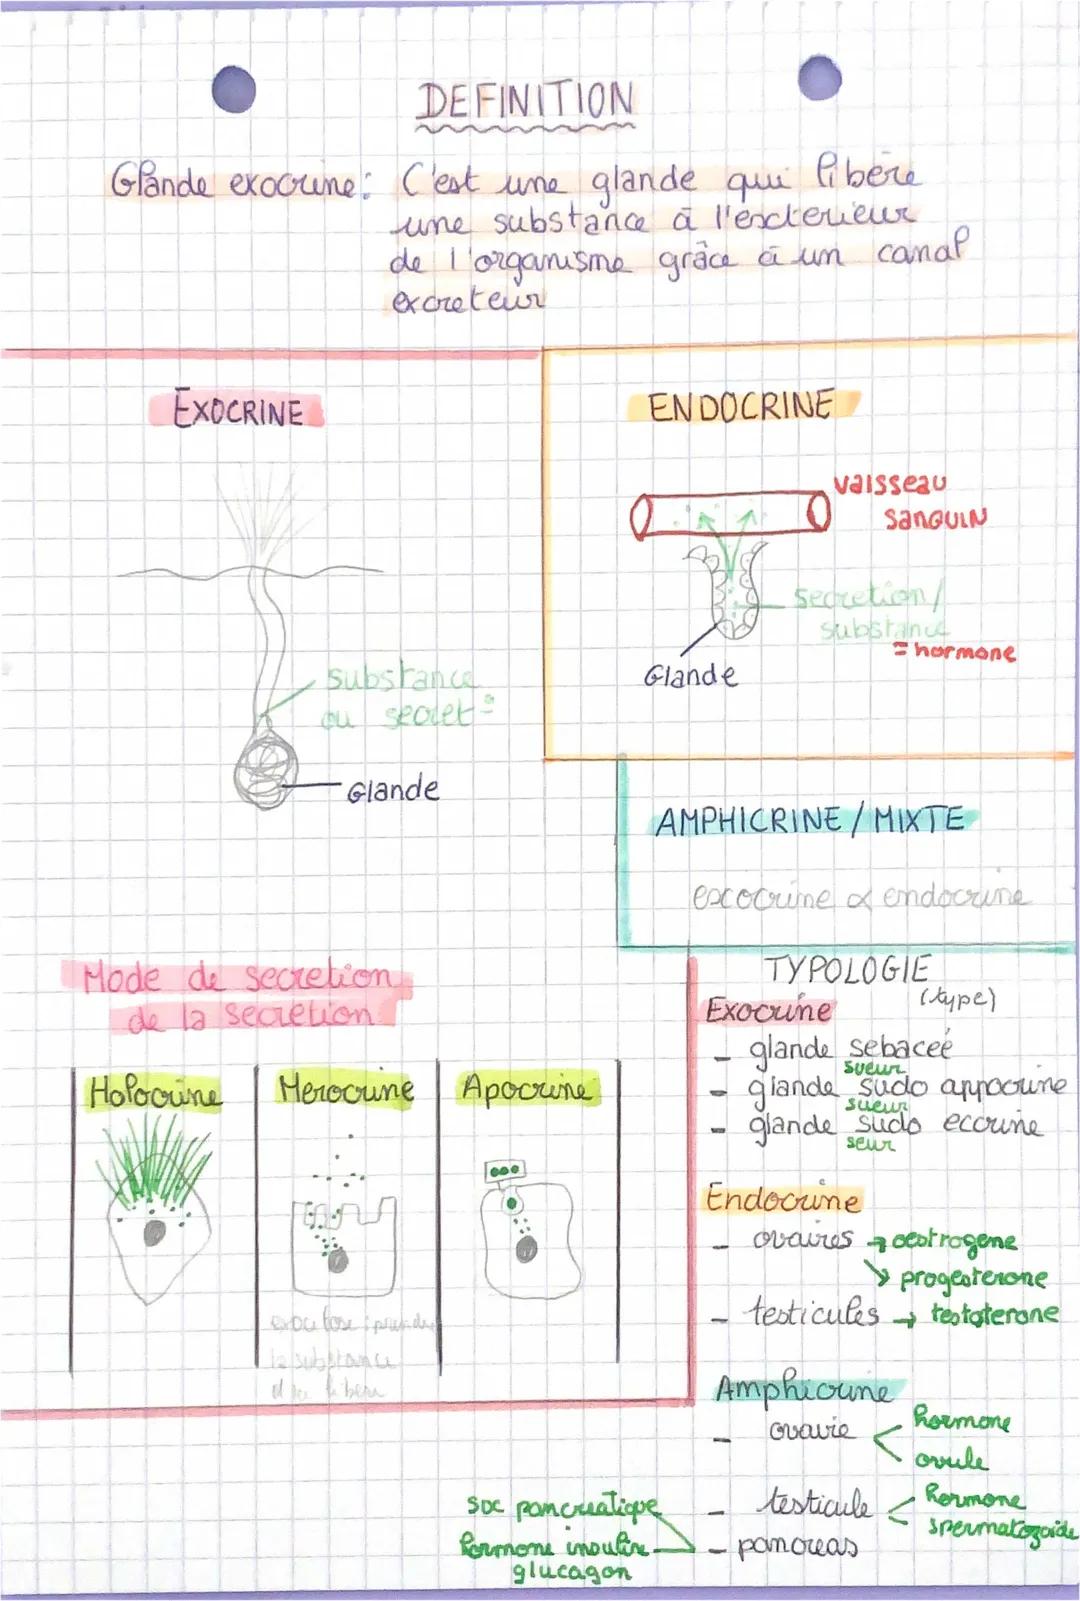 DEFINITION
Glande exocrine: C'est une glande qui libère
une substance à l'exterieur
de l'organisme grâce à un canal
excreteur
EXOCRINE
substance
ou secret°
Glande
ENDOCRINE
vaisseau
sanguin
secretion/
substance
= hormone
Glande
AMPHICRINE / MIXTE
exocrine & endocrine
Mode de secretion
de la secretion
Holocrine
Merocrine
Apocrine
la substance
TYPOLOGIE
(type)
Exocrine
- glande sebaceé
sueur
- glande sudo appocrine
sueur
- glande sudo eccrine
seur
Endocrine
- ovaires → oestrogene
↘ progesterone
- testicules → testoterone
Amphicrine
- ovavie < hormone
ovule
- testicule < hormone
spermatozoide
- pancreas
suc pancreatique
hormone insuline
glucagon